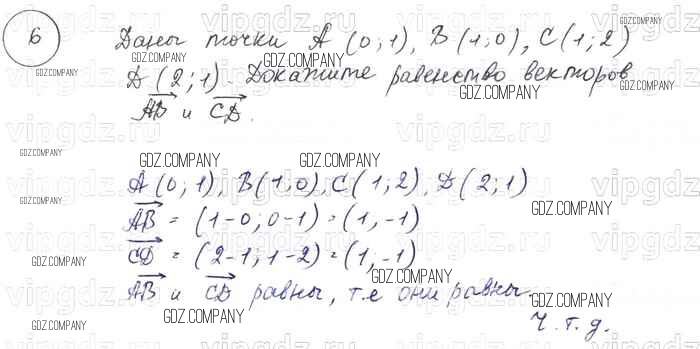 6 Даны точки A (0;1), B (1;0), C (1;2)
D (2;1). Докажите равенство векторов
AB и CD.
A (0;1), B (1;0), C (1;2), D (2;1)
AB = (1-0; 0-1) = (1,-1)
CD = (2-1; 1-2) = (1,-1)
AB и CD равны, т.е они равны.
Ч.т.д.
GDZ.COMPANY
vipgdz.ru